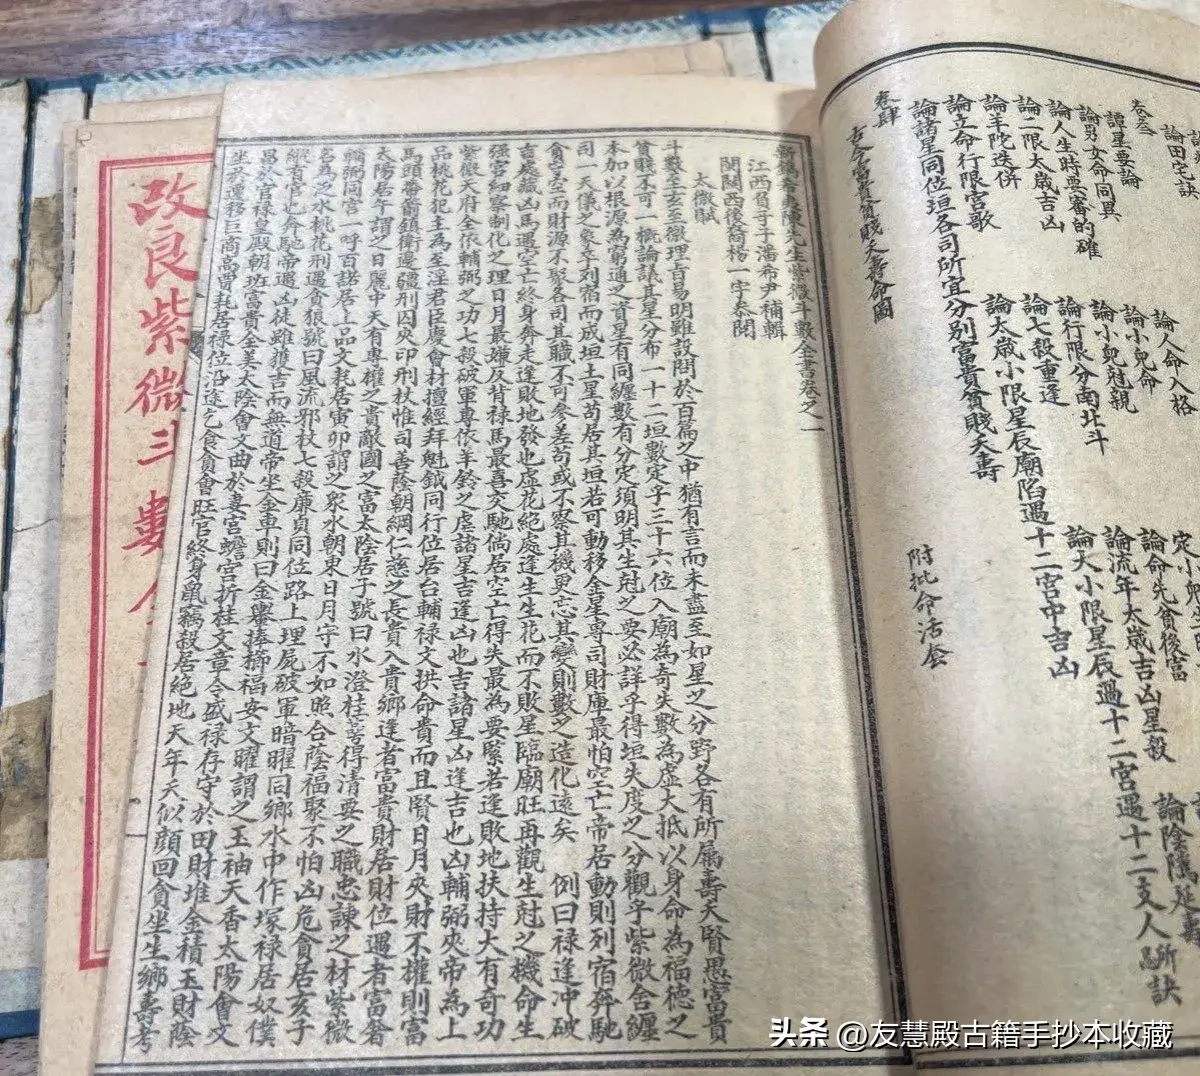 論田宅訣
論人命入格
卷叁
譚星要論
論小兒命
論命先貧後富
論男女命同異
論小兒冠親
論流年太歲吉凶星殺
論陰騭延壽
論人生時要審的確
論行限分南北斗
論大小限星辰過十二宮遇十二支人所忌訣
論二限太歲吉凶
論七殺重逢
論太歲小限星辰廟陷遇十二宮中吉凶
論羊陀迭併
論立命行限宮歌
論諸星同位垣各司所宜分別富貴貧賤夭壽
卷肆
古今富貴貧賤夭壽命圖
附批命活套
新鐫希夷陳先生紫微斗數全書卷之一
江西負子子潘希尹補輯
閩關西後裔楊一宇叅閱
太微賦
斗數至玄至微理吉易明雖設問於百篇之中猶有言而未盡至如星之分野各有所屬壽夭賢愚富貴
貧賤不可一概論議其星分布一十二垣數定乎三十六位入廟為奇失數為虛大抵以身命為福德之
本加以根源為窮通之資星有同纏數有分定須明其生尅之要必詳乎得垣失度之分觀乎紫微舍纏
司一天儀之象卒列宿而成垣土星苟居其垣若可動移金星專司財庫最怕空亡帝居動則列宿奔馳
貪守空而財源不聚各司其職不可參差苟或不察其機更忘其變則數之造化遠矣 例曰祿逢冲破
吉處藏凶馬遇空亡終身奔走逢敗地發也虛花絕處逢生生花而不敗星臨廟旺再觀生尅之機命坐
強宮細察制化之理日月最嫌反背祿馬最喜交馳倘居空亡得失最為要緊若逢敗地扶持大有奇功
紫微天府全依輔弼之功七殺破軍專依羊鈴之虐諸星吉逢凶也吉諸星凶逢吉也凶輔弼夾帝為上
品桃花犯主為至淫君臣慶會材擅經邦魁鉞同行位居台輔祿文拱命貴而且賢日月夾財不權則富
馬頭帶箭鎮衛邊疆刑囚夾印刑杖惟司善蔭朝綱仁慈之長貴入貴鄉逢者富貴財居財位遇者富奢
太陽居午謂之日麗中天有專權之貴敵國之富太陰居子號曰水澄桂萼得清要之職忠諫之材紫微
輔弼同宮一呼百諾居上品文耗居寅卯謂之衆水朝東日月守不如照合蔭福聚不怕凶危貪居亥子
名為泛水桃花刑遇貪狼號曰風流邪杖七殺廉貞同位路上埋屍破軍暗曜同鄉水中作塚祿居奴僕
縱有官也奔馳帝遇凶徒雖獲吉而無道帝坐金車則曰金轝捧擳福安文曜謂之玉袖天香太陽會文
昌於官祿皇殿朝班富貴全美太陰會文曲於妻宮蟾宮折桂文章令盛祿存守於田財堆金積玉財蔭
坐遷移巨商高賈耗居祿位沿途乞食貪會旺宮終身鼠竊殺居絕地天年夭似顏回貪坐生鄉壽考
改良紫微斗數全
头条 @友慧殿古籍手抄本收藏